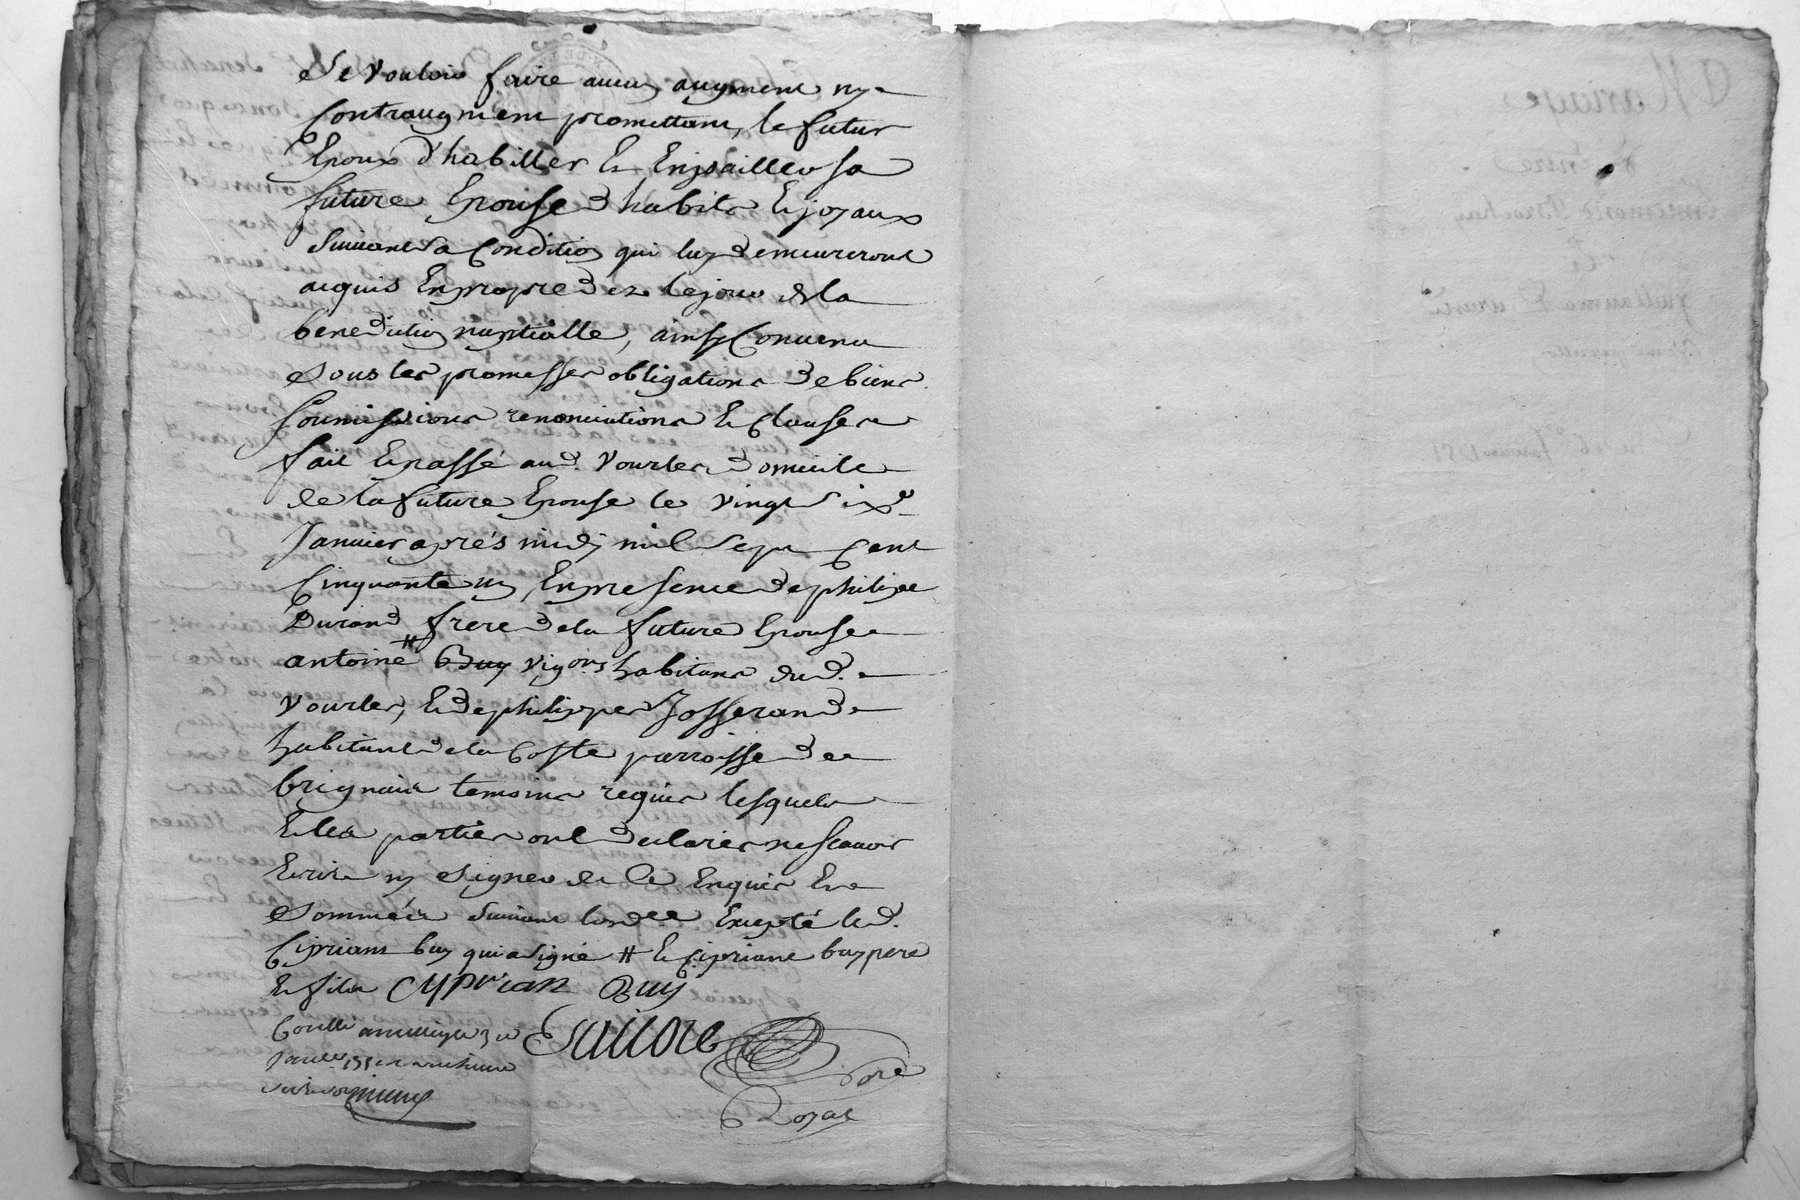 se vouloir faire aucun augment ny
contraugment promettant, le futur
Epoux d'habiller Et Enjoailler sa
future Epouse d'habits Et joyaux
suivant sa condition qui luy demeureront
acquis En propre dez le jour de la
benediction nuptialle, ainsy convenu
sous les promesses obligations de biens
soumissions renonciations Et clauses
fait Et passé aud. Vourles domicile
de la future Epouse le vingt six.e
Janvier après midy mil sept cent
cinquante un En presence de philipe
Durand frere de la future Epouse
antoine # Buy vignons habitans dud.
Vourles, Et de philippes Josserand
habitant de la coste parroisse de
brignais temoins requis lesquels
Et les parties ont declarés ne scavoir
Ecrire ny signer de ce Enquis Et
sommés suivant lord.ce Excepté led.
Ciprians buy qui a signé # Et Cipriane buy pere
Et fils Cyprian Buy
No.re
Royal